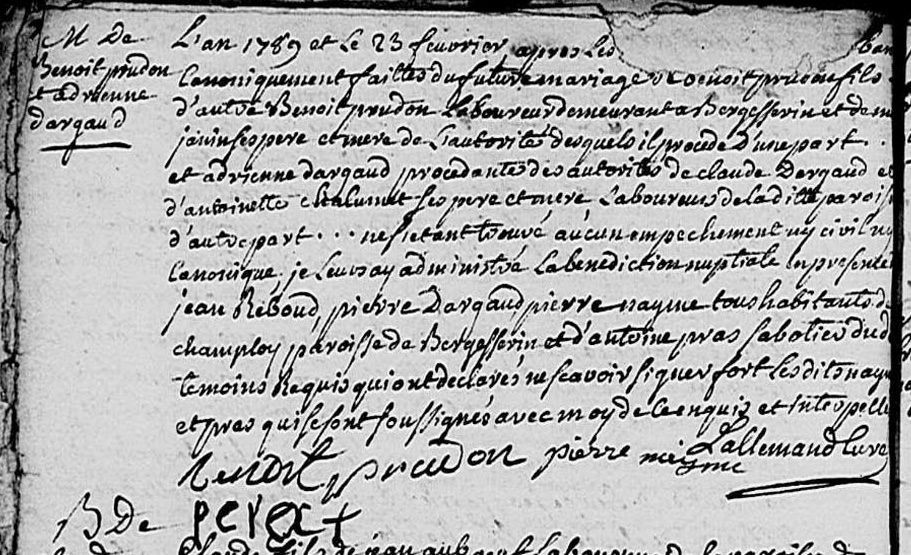 M De
Benoit prudon
et adrienne
dargaud
L'an 1789 et Le 23 fevrier apres Les ban
Canoniquement faittes du future mariage de benoit prudon fils
d'autre Benoit prudon Laboureur demeurant a Bergesserin et de
ses pere et mere de L'autorité desquels il procede d'une part.
et adrienne dargaud procedante des autorités de claude Dergaud et
d'antoinette chalumet ses pere et mere Laboureurs de la ditte parois
d'autre part... ne s'etant trouvé aucun empechement ny civil ny
Canonique. je Leurs ay administré La benediction nuptiale en presente
jean Reboud, pierre Dargaud, pierre nayme tous habitants de
champloy paroisse de Bergesserin et d'antoine pras sabotier dud
temoins Requis qui ont declarés ne scavoir signer fort Les dits nayme
et pras qui se sont soussignés avec moy de ce enquis et interpellé
Benoit prudon pierre neime Lallemand Curé
B De
Claude fils de jean aubent Laboureur